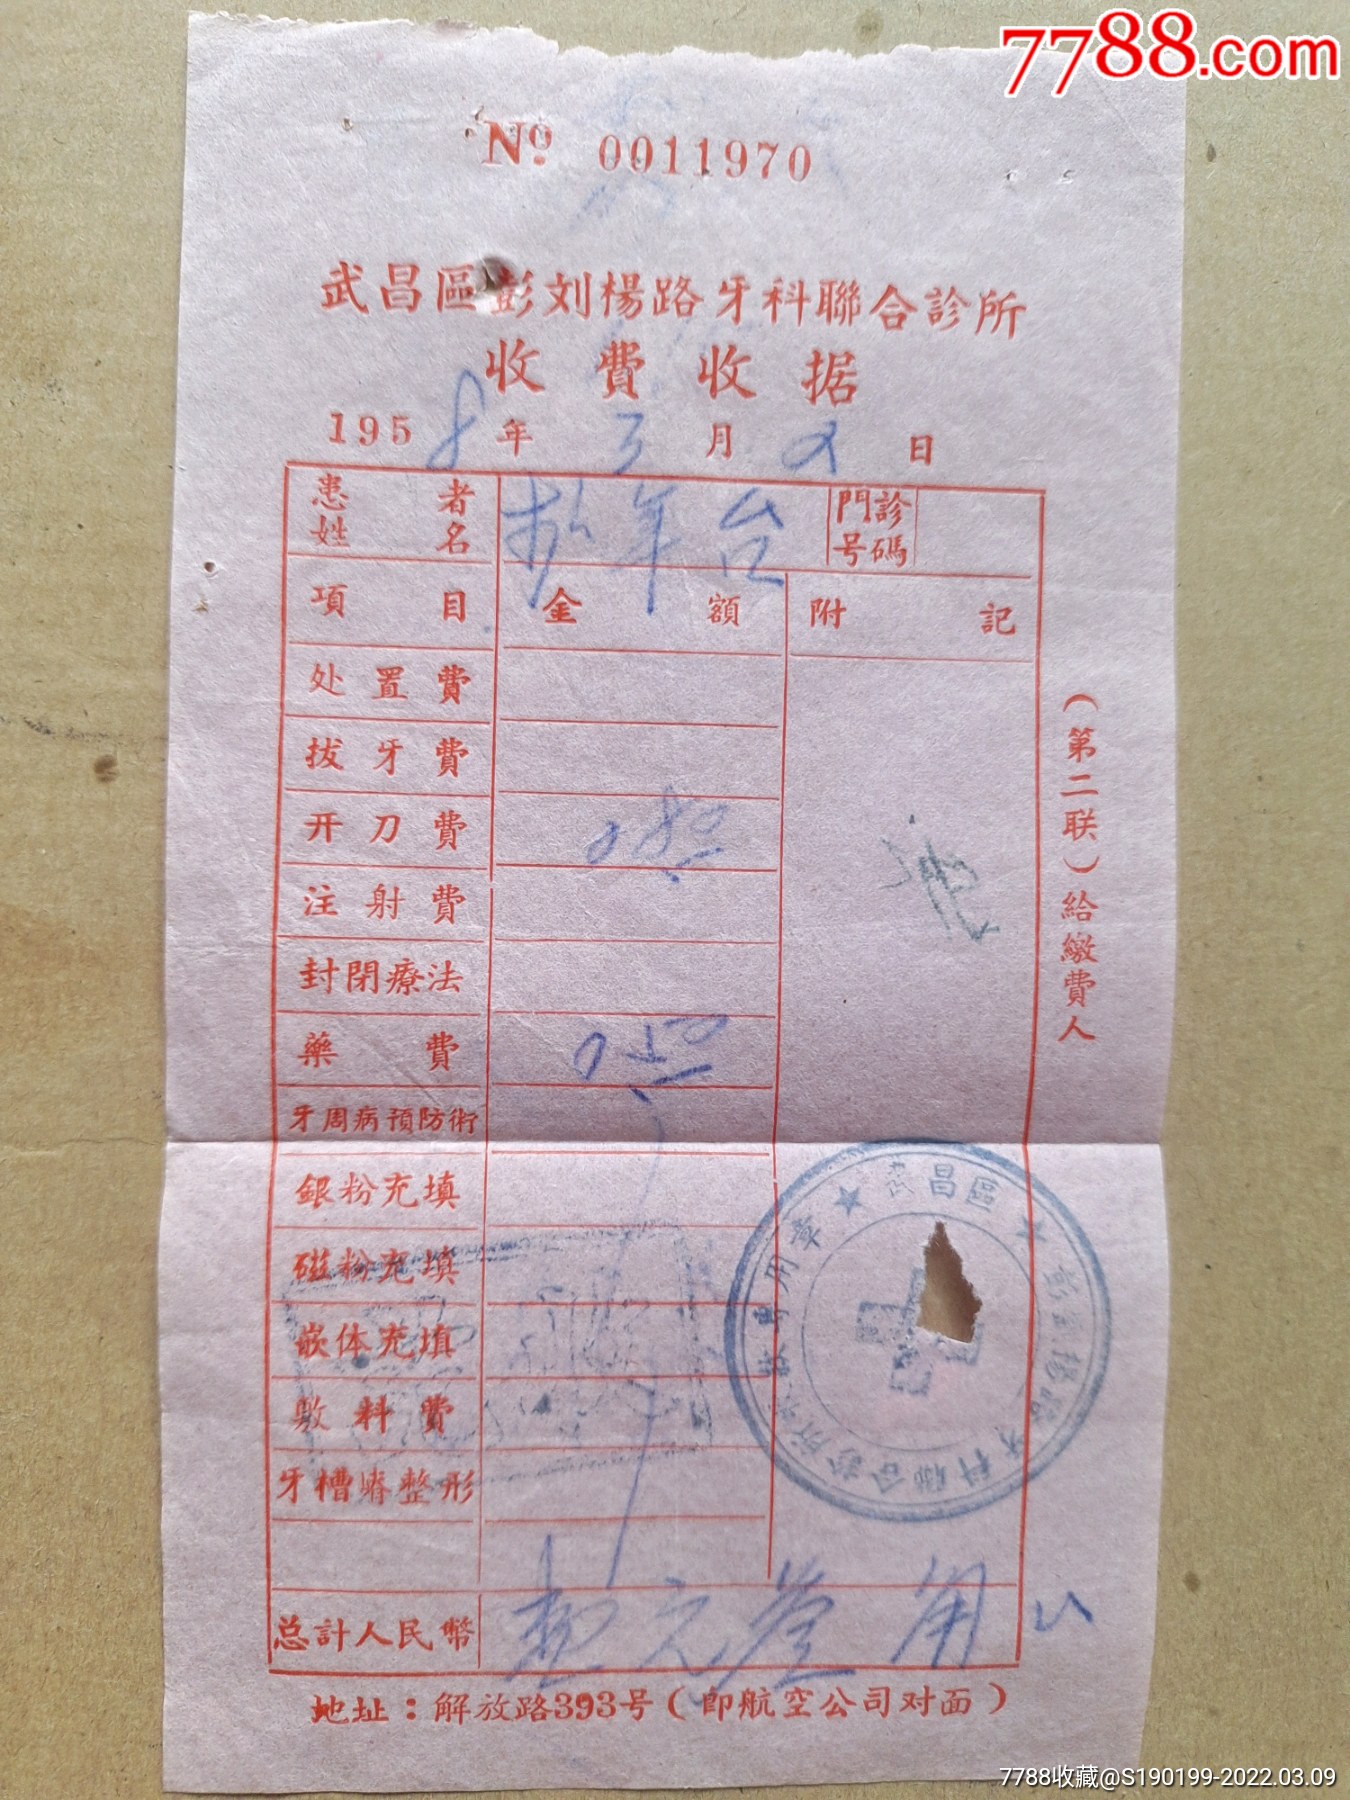 7788.com
No 0011970
武昌區彭刘楊路牙科聯合診所
收費收据
1958年3月2日
患者姓名 年台 門診号碼
項目 金額 附記
处置費
拔牙費
开刀費 0.80
注射費
封閉療法
藥費 0.50
牙周病預防術
銀粉充填
磁粉充填
嵌体充填
敷料費
牙槽嵴整形
总計人民幣 壹元叁角
地址：解放路393号（即航空公司对面）
（第二联）給繳費人
武昌區彭刘楊路牙科聯合診所收費專用章
7788收藏@S190199-2022.03.09